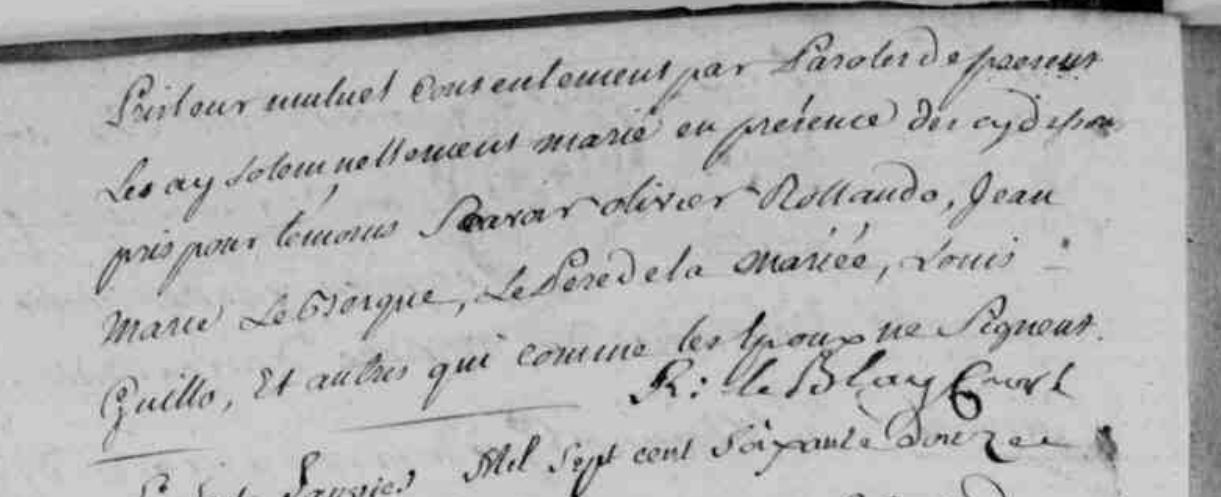 Pris leur mutuel consentement par Paroles de present
Les ay solemnellement marié en présence des cy dessous
pris pour témoins Scavoir olivier Rollando, Jean
Marie Le Gorgue, Le Pere de la mariée, Louis
Guillo, Et autres qui comme les Epoux ne Signent.
R: le Blay Curé
Janvier Mil Sept cent Soixante Douze